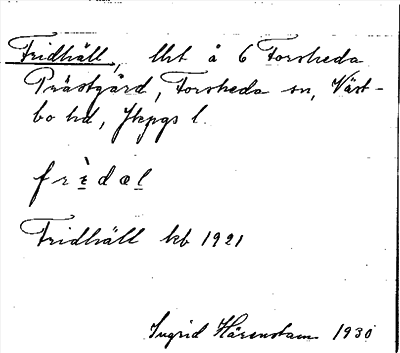 Fridhäll, lht å 6 Forsheda
Prästgård, Forsheda sn, Väst-
bo hd, Jkpgs l.
frìdæl
Fridhäll kb 1921
Ingrid Härenstam 1930